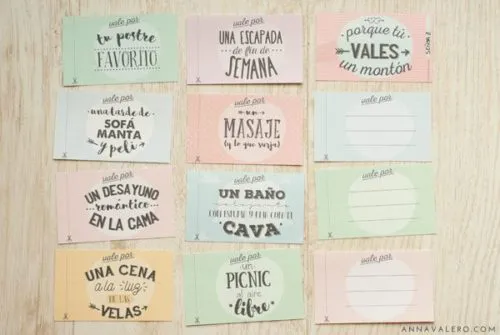 vale por
tu postre
FAVORITO
vale por
UNA ESCAPADA
de fin de
SEMANA
porque tú
VALES
un montón
vale por
una tarde de
SOFÁ
MANTA
y peli
vale por
un
MASAJE
(y lo que surja)
vale por
vale por
UN DESAYUNO
romántico
EN LA CAMA
vale por
UN BAÑO
relajante
CON ESPUMA Y CON
CAVA
vale por
vale por
UNA CENA
a la luz
DE LAS
VELAS
vale por
un
PICNIC
al aire
libre
vale por
ANNAVALERO.COM